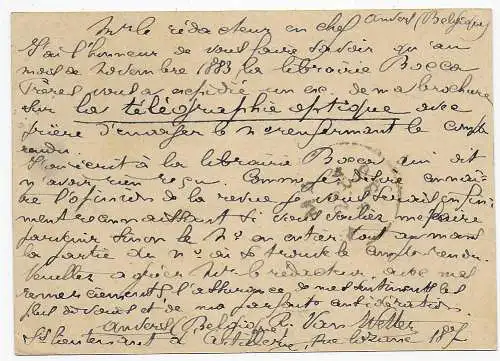 Mr le rédacteur en chef Anvers (Belgique)
J'ai l'honneur de vous faire savoir qu'au
mois de novembre 1883 la librairie Bocca
Frères vous a expédié un ex. de ma brochure
sur la télégraphie optique avec
prière d'envoyer le no renfermant le compte
rendu.
J'ai écrit à la librairie Bocca qui dit
n'avoir rien reçu. Comme je désire connaî-
tre l'opinion de la revue je vous serais infini-
ment reconnaissant si vous vouliez me faire
parvenir sinon le no en entier tout au moins
la partie du no où se trouve le compte rendu.
Veuillez agréer Mr le rédacteur, avec mes
remerciements, l'assurance de mes sentiments les
plus dévoués et de ma parfaite considération.
Anvers (Belgique) R. Van Wetter
Lieutenant d'artillerie, rue Lozane 187